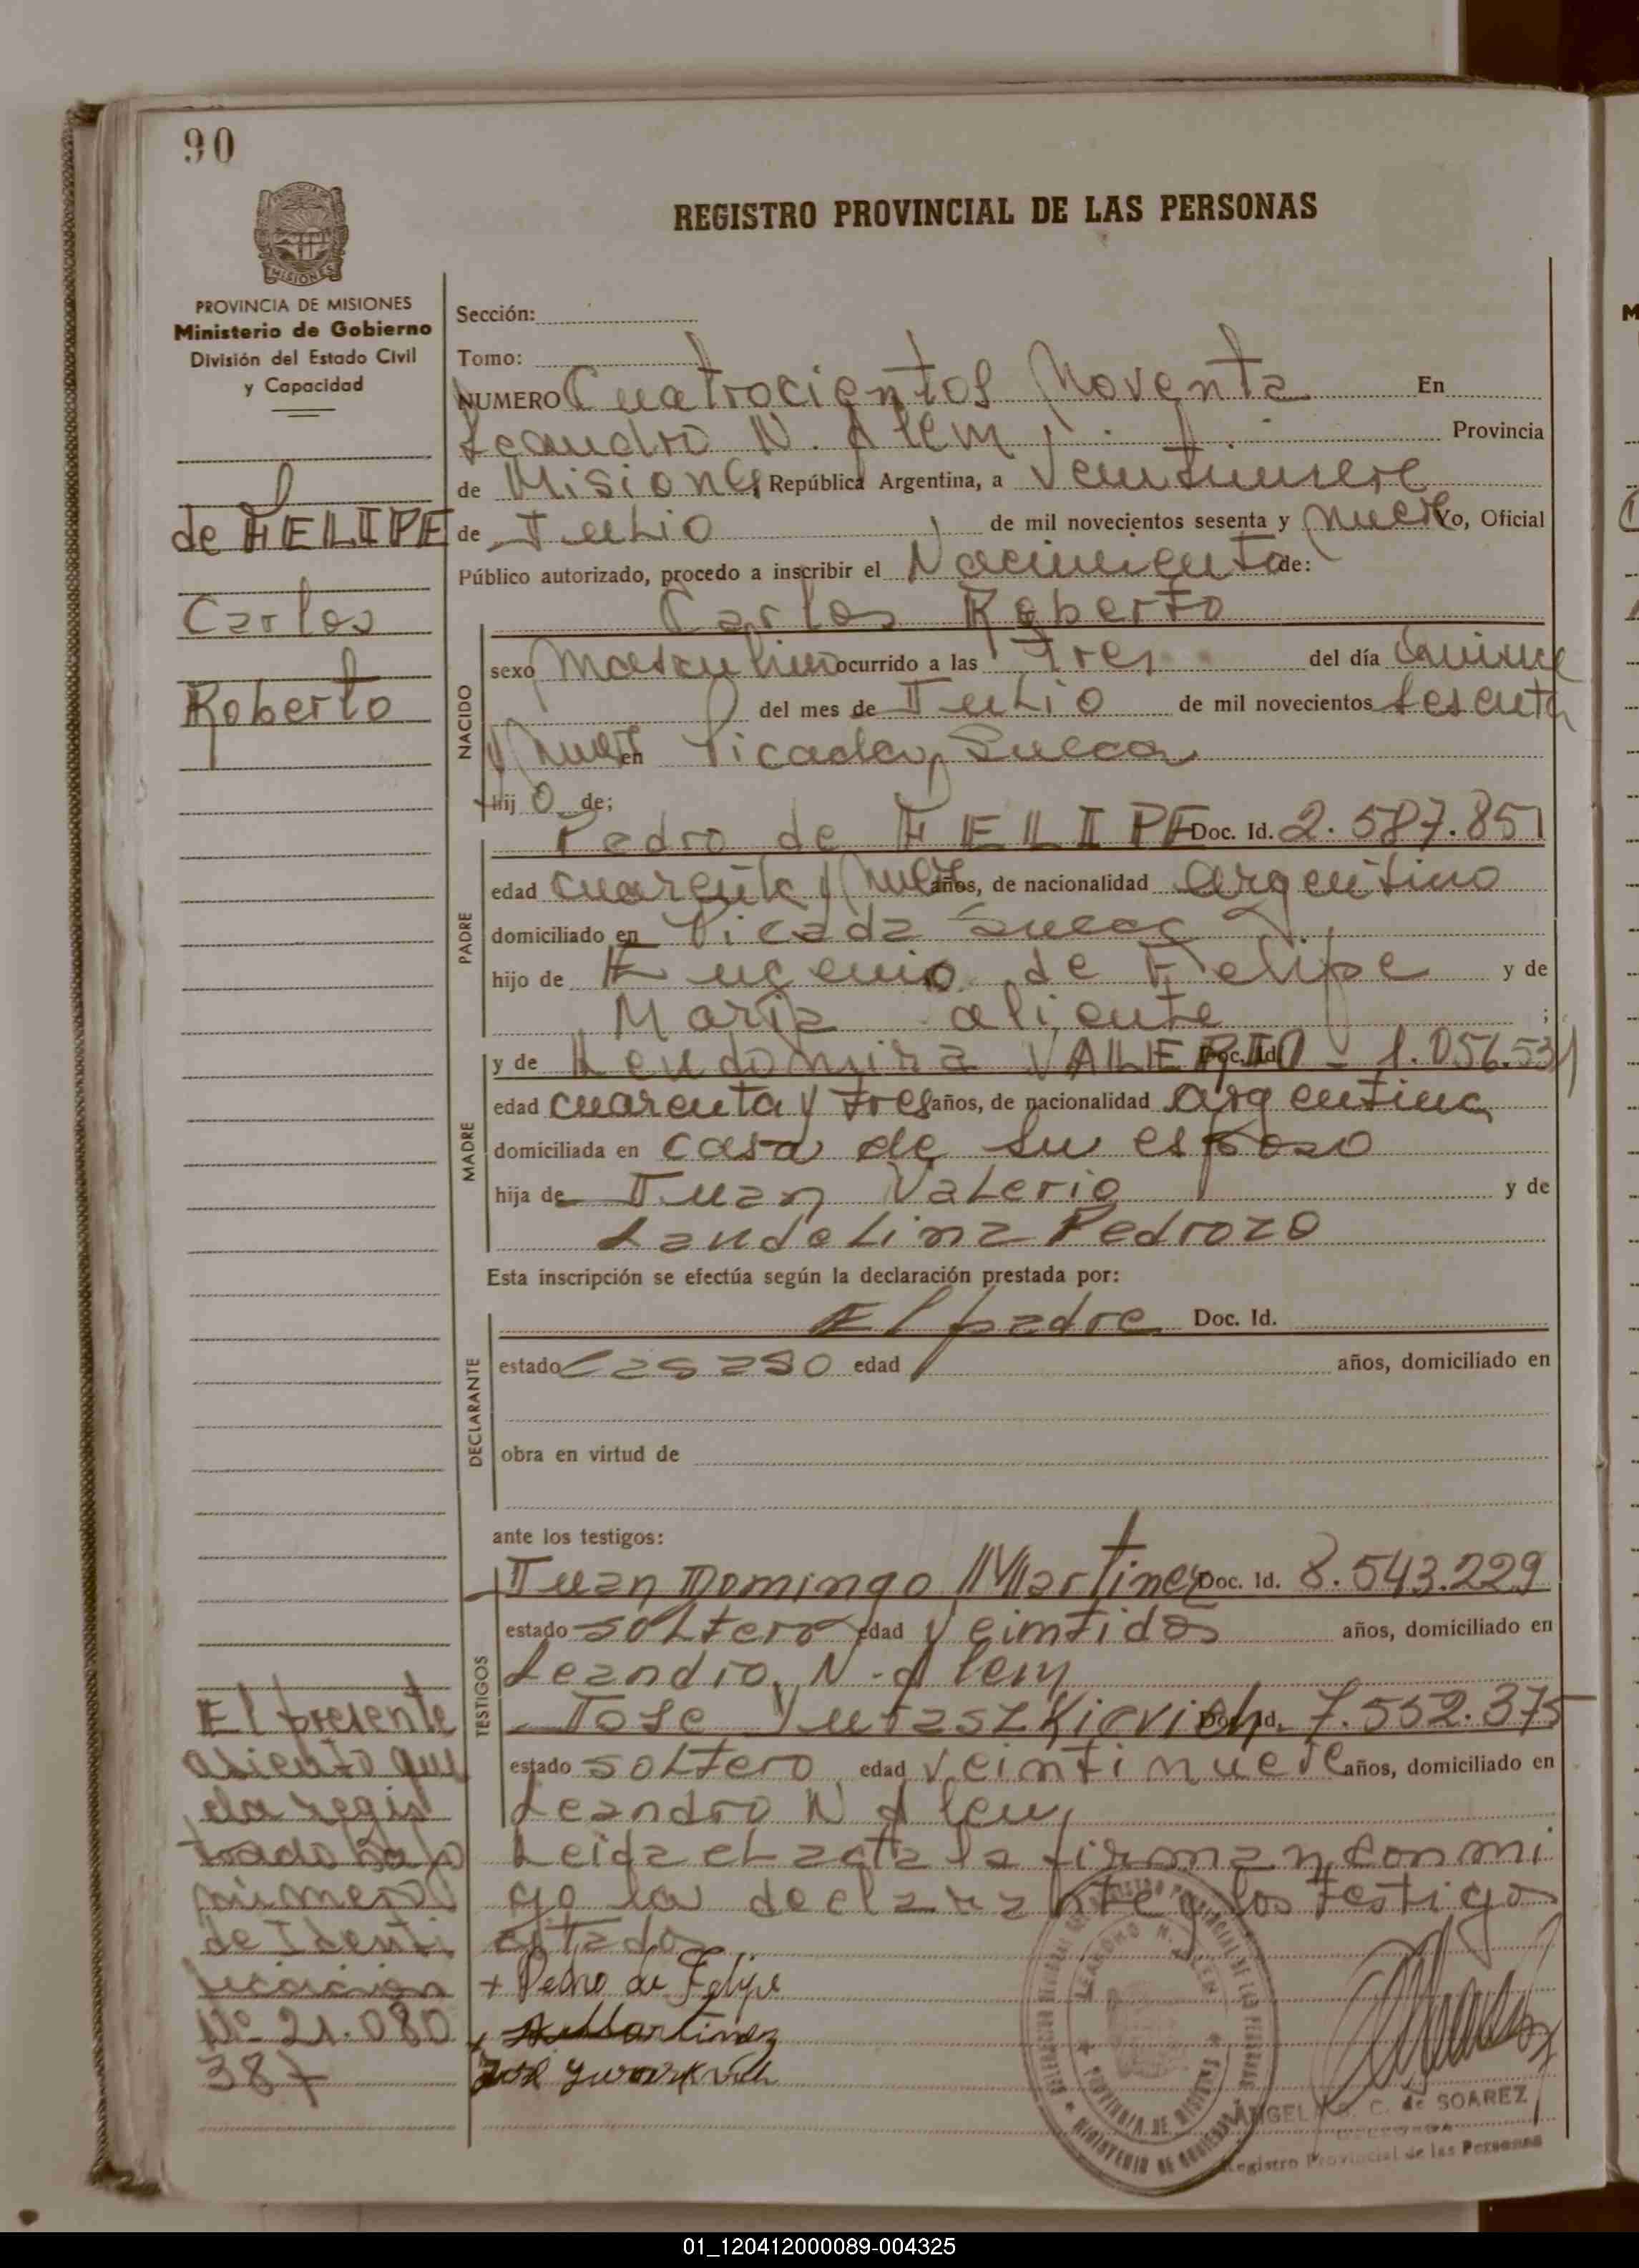 90
REGISTRO PROVINCIAL DE LAS PERSONAS
PROVINCIA DE MISIONES
Ministerio de Gobierno
División del Estado Civil
y Capacidad
de FELIPE
Carlos
Roberto
Sección:
Tomo:
NUMERO Cuatrocientos Noventa En
Leandro N. Alem Provincia
de Misiones República Argentina, a Veintinueve
de Julio de mil novecientos sesenta y nueve Yo, Oficial
Público autorizado, procedo a inscribir el Nacimiento de:
Carlos Roberto
NACIDO
sexo Masculino ocurrido a las Tres del día Quince
del mes de Julio de mil novecientos sesenta
y nueve en Picada Sueca
hij o de;
PADRE
Pedro de FELIPE Doc. Id. 2.587.851
edad cuarenta y nueve años, de nacionalidad argentino
domiciliado en Picada Sueca
hijo de Eugenio de Felipe y de
Maria aliente ;
MADRE
y de Leudomira VALERIO Doc. Id. - 1.056.531
edad cuarenta y tres años, de nacionalidad argentina
domiciliada en casa de su esposo
hija de Juan Valerio y de
Landelina Pedrozo
Esta inscripción se efectúa según la declaración prestada por:
DECLARANTE
El padre Doc. Id.
estado Casado edad años, domiciliado en
obra en virtud de
ante los testigos:
TESTIGOS
Juan Domingo Martinez Doc. Id. 8.543.229
estado soltero edad veintidos años, domiciliado en
Leandro N. Alem
Jose Doc. Id. 7.552.375
estado soltero edad veintinueve años, domiciliado en
Leandro N Alem
Leida el acta la firman conmi
go la declarante y los testigos
citados
+ Pedro de Felipe
Martinez
José
El presente
asiento que
da regis
trado bajo
numero
de Identi
ficacion
Nº 21.080
387
LEANDRO N. ALEM
PROVINCIA DE MISIONES
MINISTERIO DE GOBIERNO
C. de SOAREZ
Registro Provincial de las Personas
01_120412000089-004325